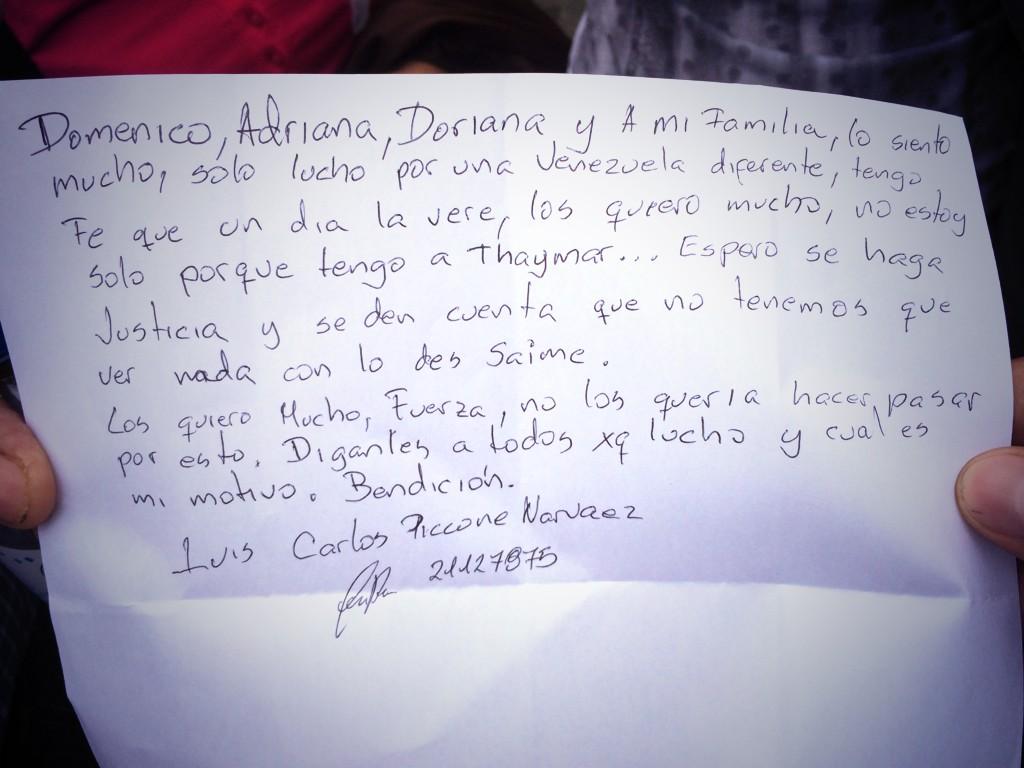 Domenico, Adriana, Doriana y A mi Familia, lo siento
mucho, solo lucho por una Venezuela diferente, tengo
Fe que un dia la vere, los quiero mucho, no estoy
solo porque tengo a Thaymar... Espero se haga
Justicia y se den cuenta que no tenemos que
ver nada con lo des Saime.
Los quiero Mucho, Fuerza, no los queria hacer pasar
por esto. Diganles a todos xq lucho y cual es
mi motivo. Bendición.
Luis Carlos Piccone Narvaez
21127875